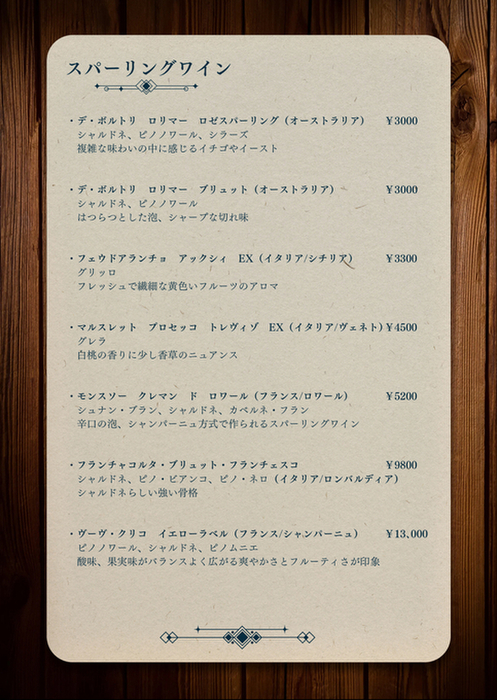 スパーリングワイン
・デ・ボルトリ　ロリマー　ロゼスパーリング（オーストラリア）　￥3000
シャルドネ、ピノノワール、シラーズ
複雑な味わいの中に感じるイチゴやイースト
・デ・ボルトリ　ロリマー　ブリュット（オーストラリア）　￥3000
シャルドネ、ピノノワール
はつらつとした泡、シャープな切れ味
・フェウドアランチョ　アックシィ　EX（イタリア/シチリア）　￥3300
グリッロ
フレッシュで繊細な黄色いフルーツのアロマ
・マルスレット　プロセッコ　トレヴィゾ　EX（イタリア/ヴェネト）￥4500
グレラ
白桃の香りに少し香草のニュアンス
・モンスソー　クレマン　ド　ロワール（フランス/ロワール）　￥5200
シュナン・ブラン、シャルドネ、カベルネ・フラン
辛口の泡、シャンパーニュ方式で作られるスパーリングワイン
・フランチャコルタ・ブリュット・フランチェスコ　￥9800
シャルドネ、ピノ・ビアンコ、ピノ・ネロ（イタリア/ロンバルディア）
シャルドネらしい強い骨格
・ヴーヴ・クリコ　イエローラベル（フランス/シャンパーニュ）　￥13,000
ピノノワール、シャルドネ、ピノムニエ
酸味、果実味がバランスよく広がる爽やかさとフルーティさが印象